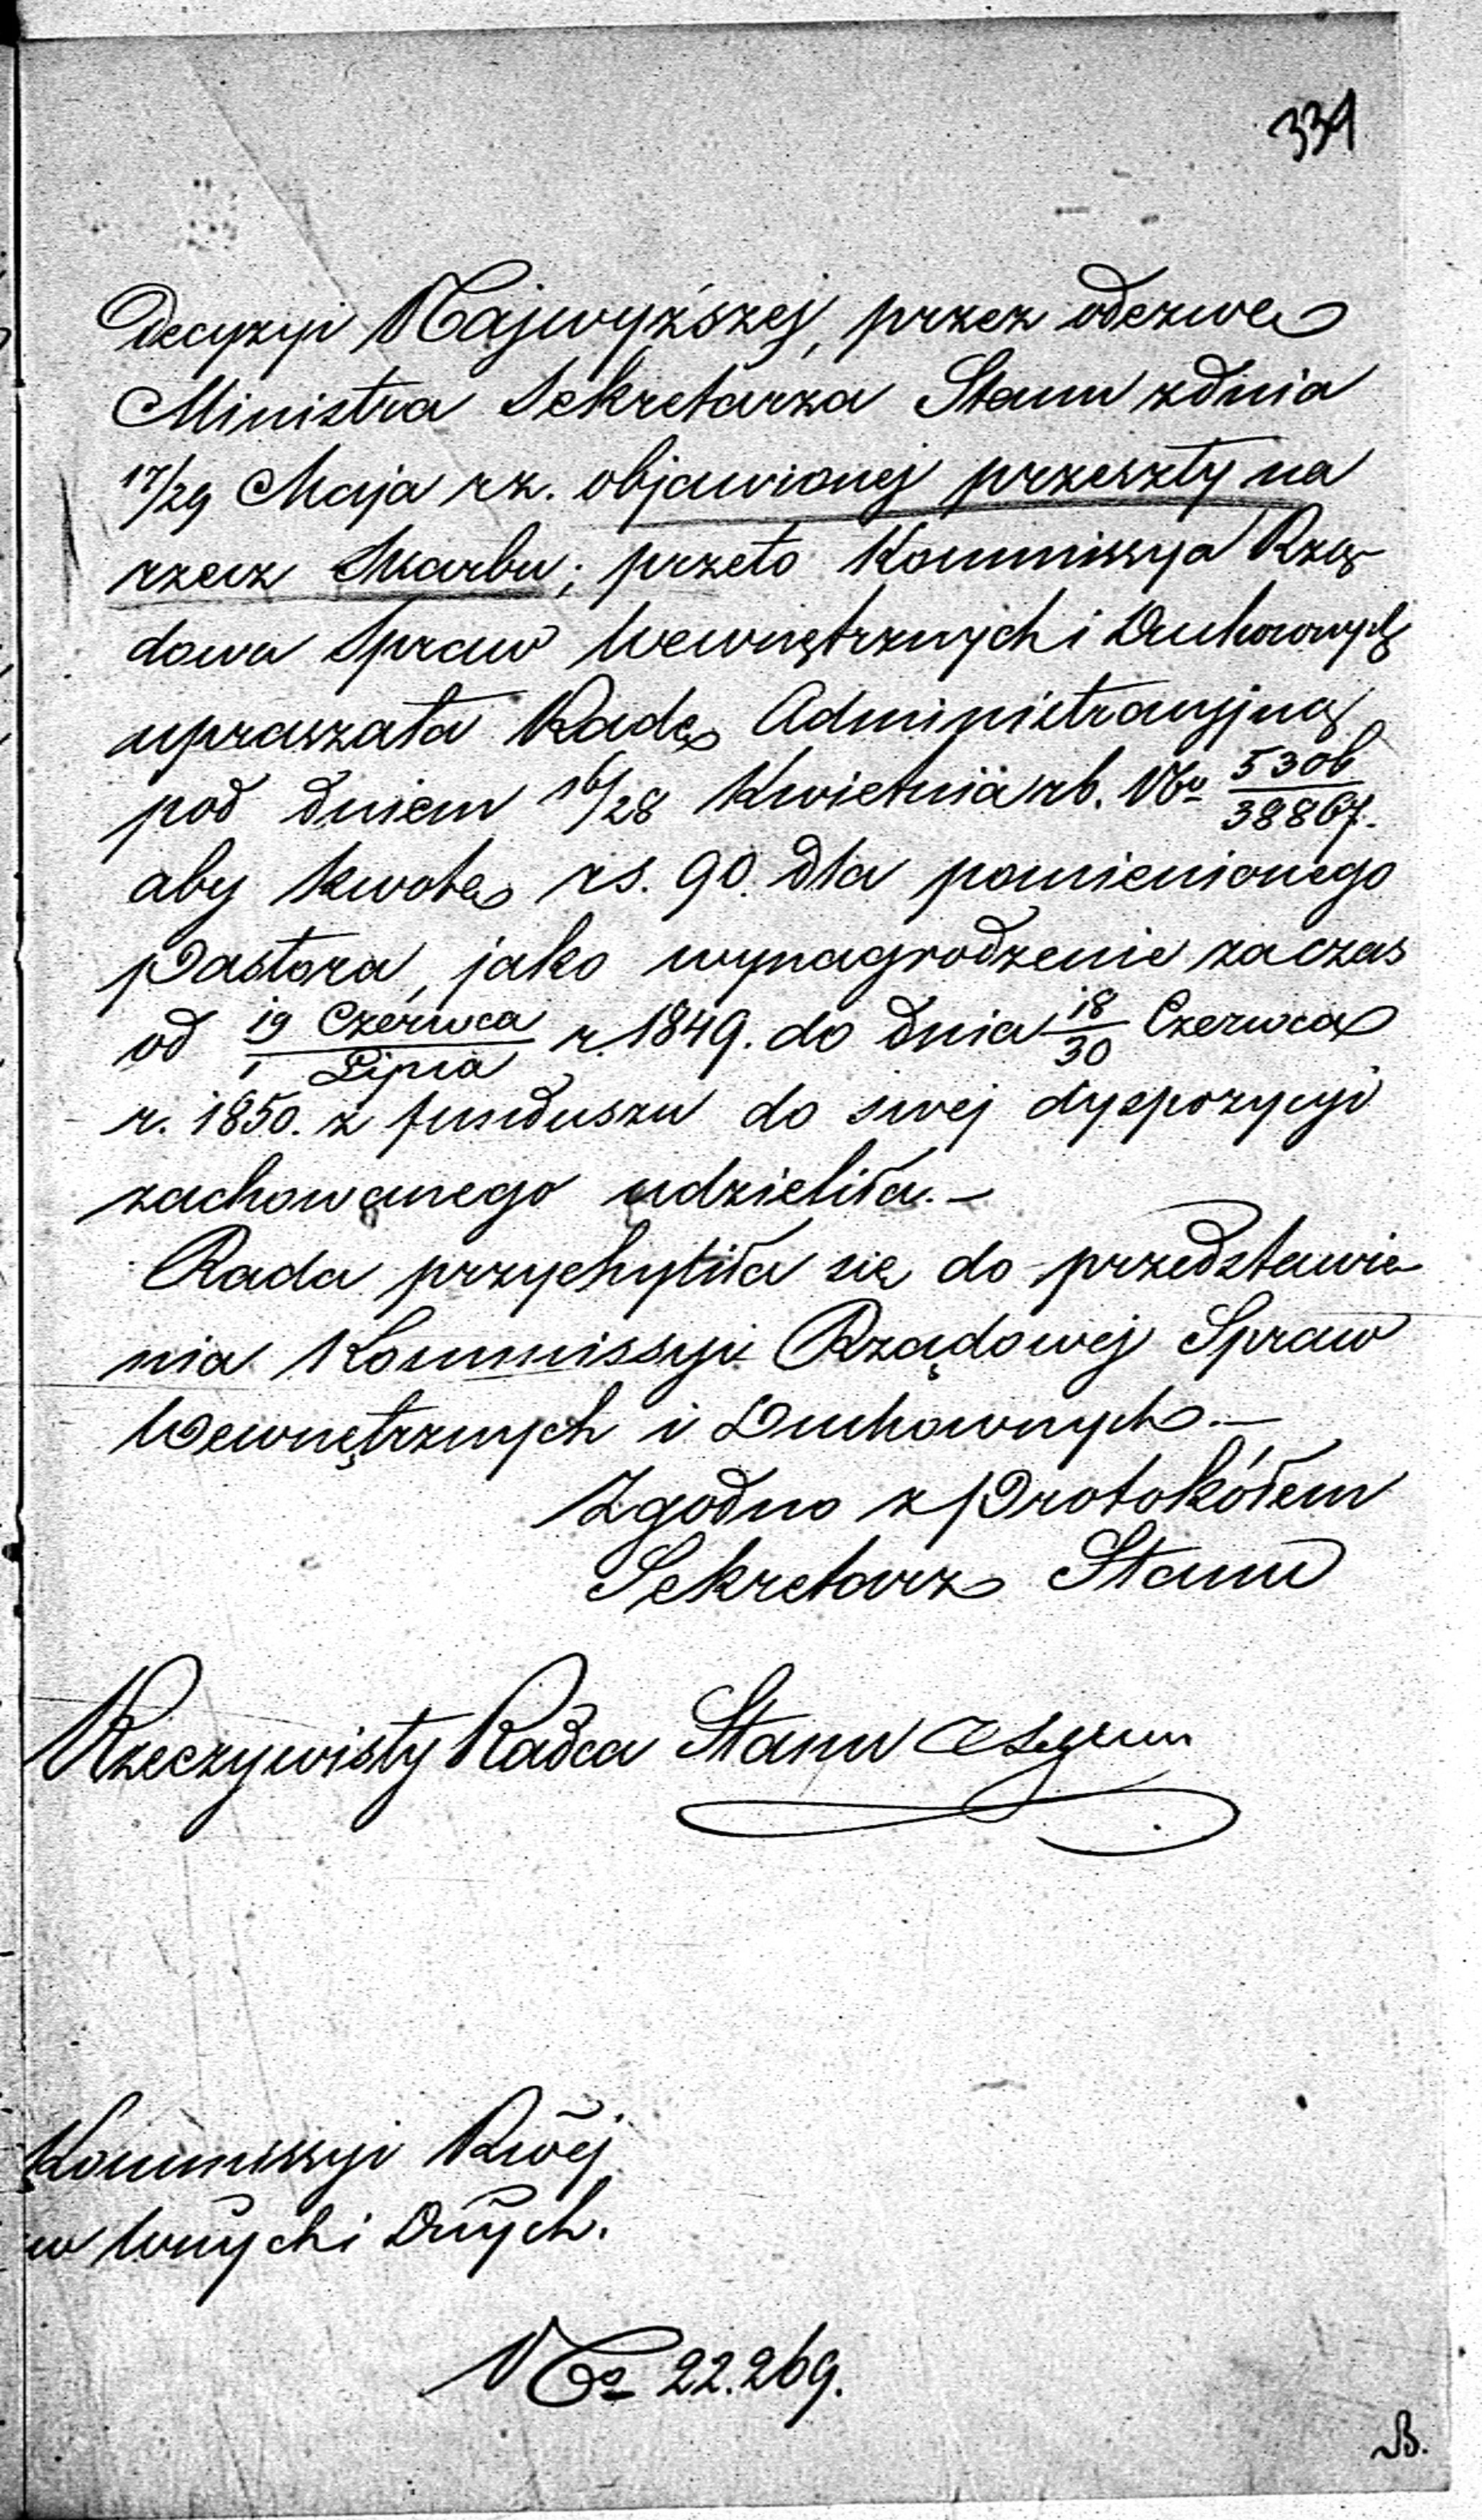 331
decyzyi Najwyższej, przez odezwę
Ministra Sekretarza Stanu z dnia
17/29 Maja r.z. objawionej przeszły na
rzecz Skarbu; przeto Kommissya Rzą-
dowa Spraw Wewnętrznych i Duchownych
upraszała Radę Administracyjną
pod dniem 16/28 Kwietnia r.b. No 5306/38867.
aby kwotę rs. 90. dla pomienionego
Pastora, jako wynagrodzenie za czas
od 19 Czerwca/1 Lipca r. 1849. do dnia 18/30 Czerwca
r. 1850. z funduszu do swej dyspozycyi
zachowanego udzieliła.–
Rada przychyliła się do przedstawie-
nia Kommissyi Rządowej Spraw
Wewnętrznych i Duchownych.–
Zgodno z Protokółem
Sekretarz Stanu
Rzeczywisty Radca Stanu
Kommissyi Rwéj
w Wnych i Dnych.
No 22.269.
B.